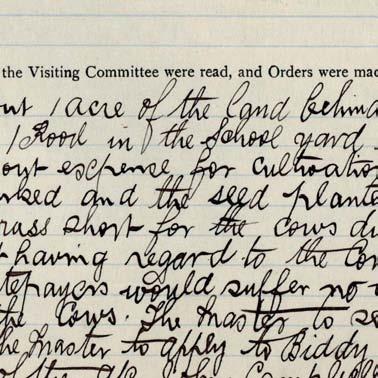 the Visiting Committee were read, and Orders were mad
out 1 acre of the land behind
1 Rood in the School yard
out expense for cultivation
and the seed plante
rass short for the cows du
having regard to the Con
tepayers would suffer no
the Cows. The Master to se
the Master to apply to Biddy
of the